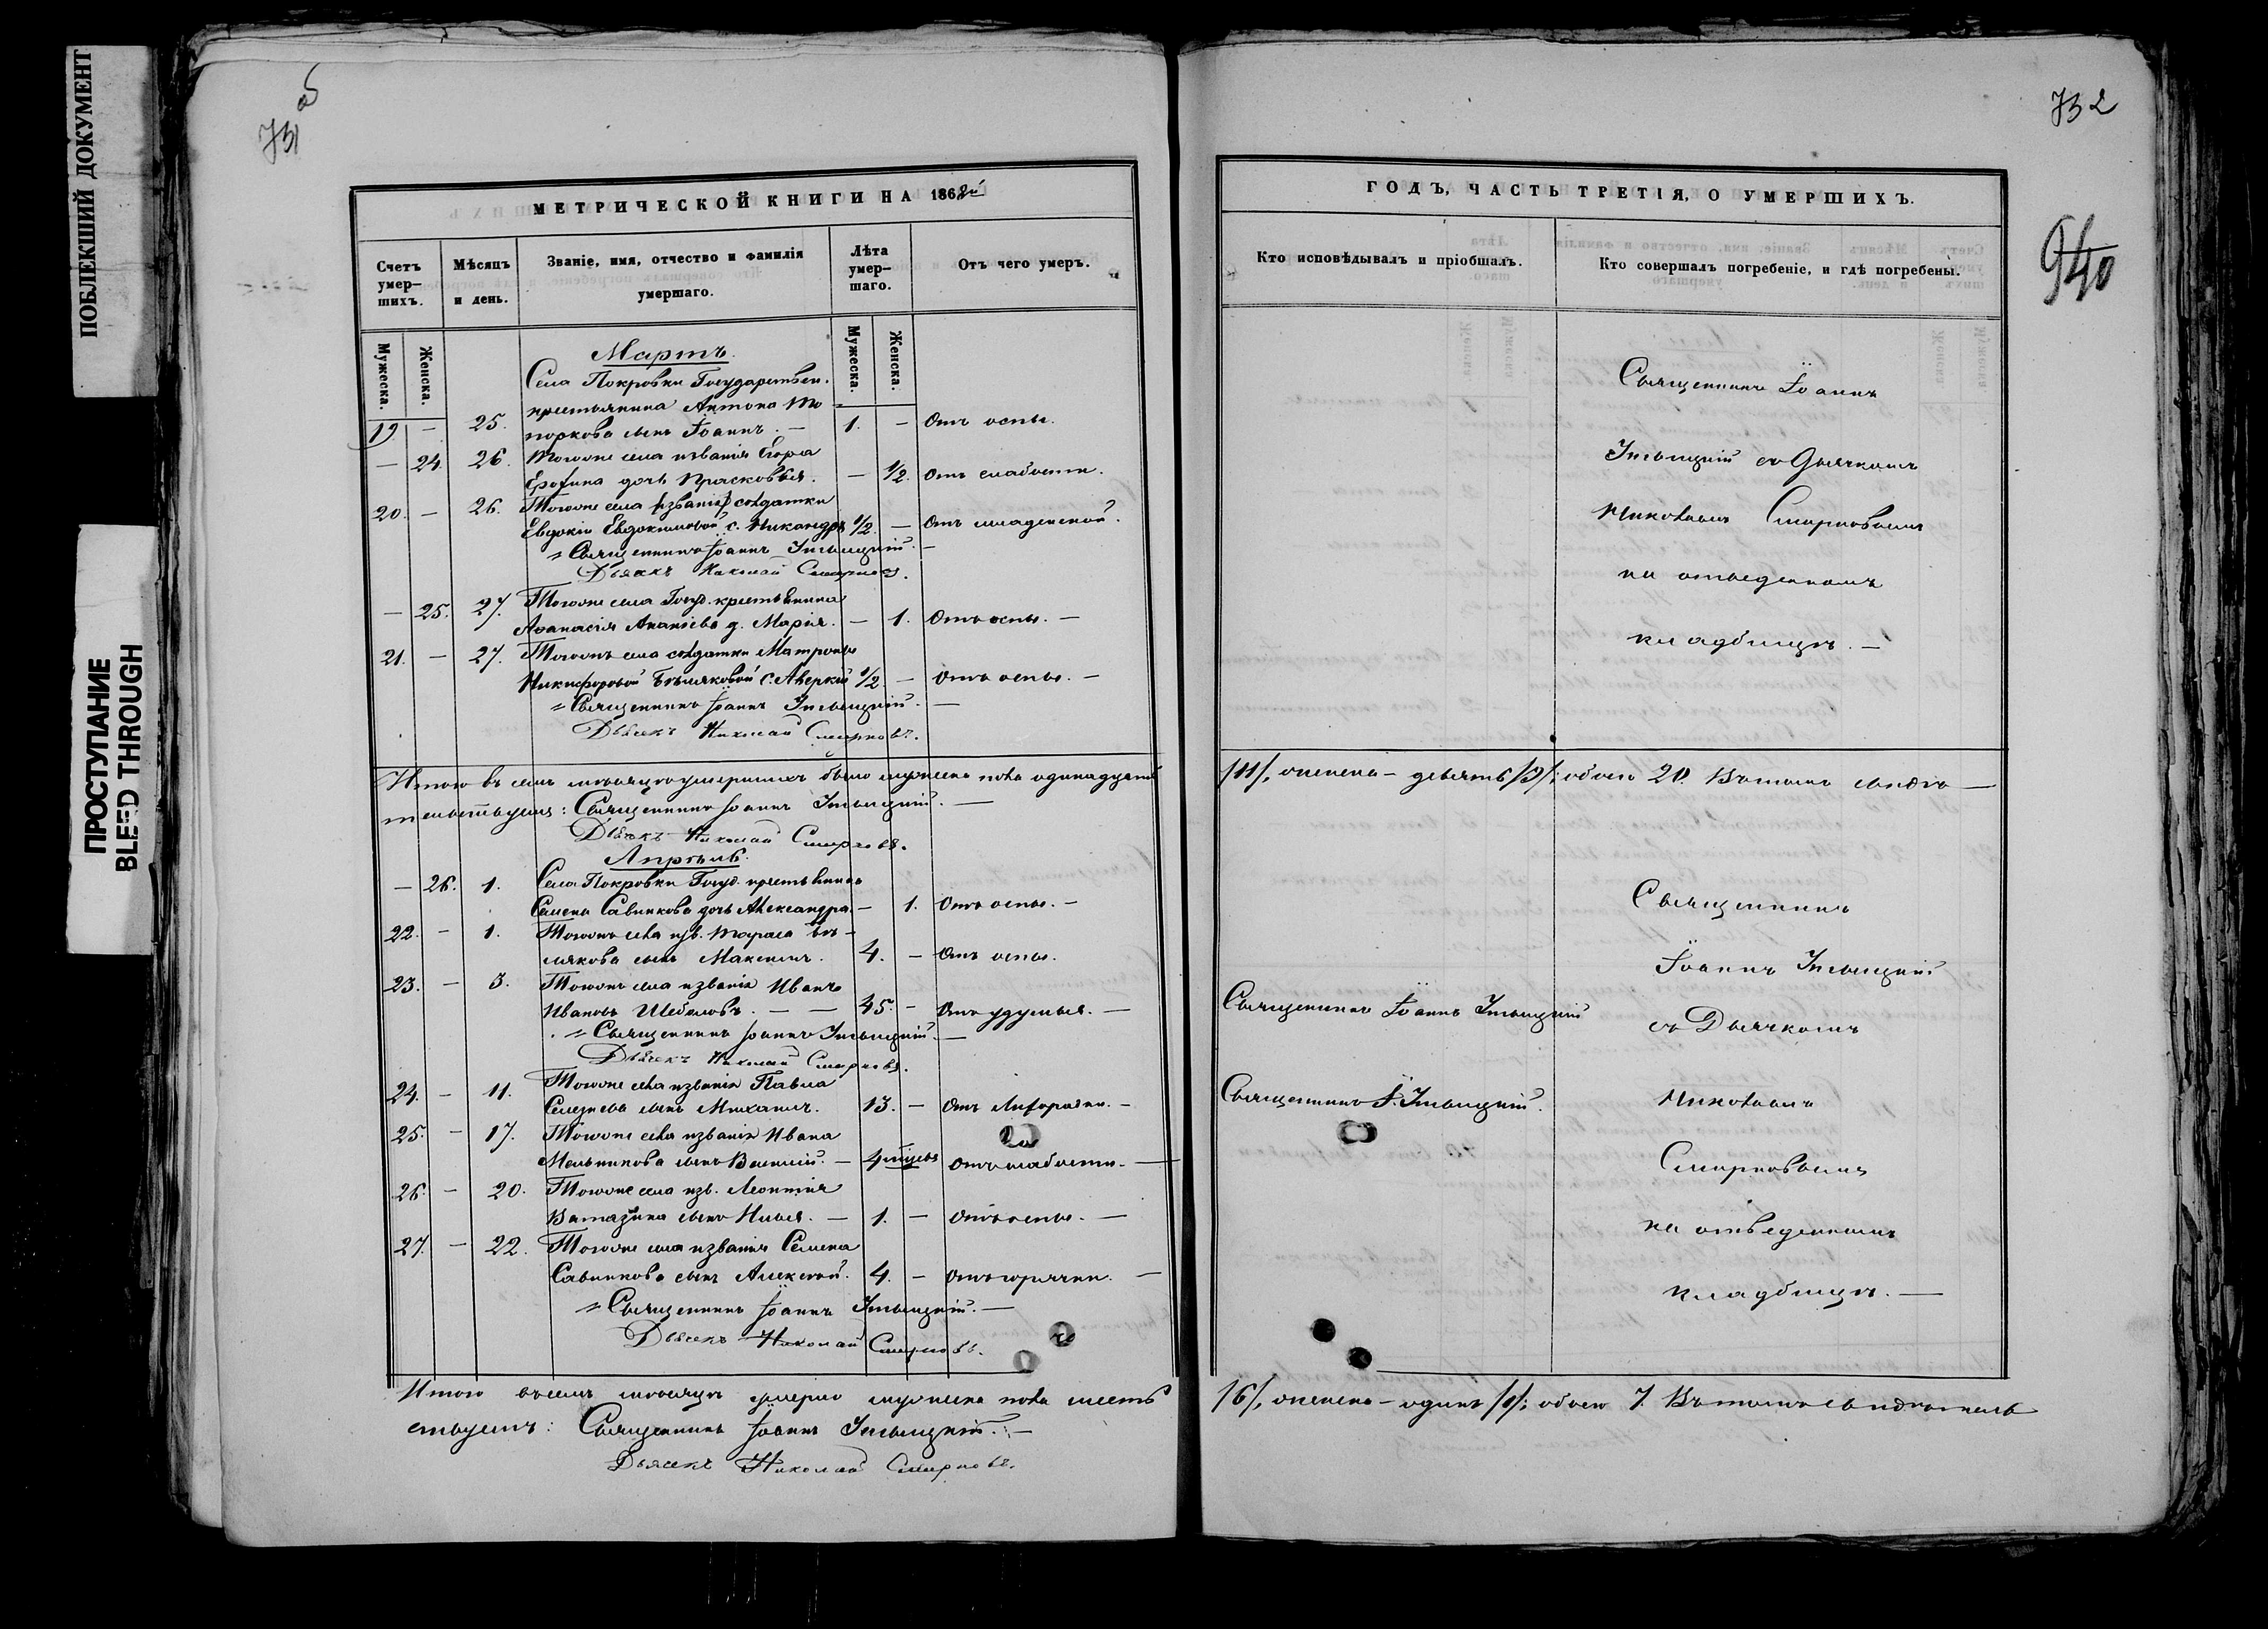 ПОБЛЕКШИЙ ДОКУМЕНТ
ПРОСТУПАНИЕ
BLEED THROUGH
731
об
МЕТРИЧЕСКОЙ КНИГИ НА 1868й
Счетъ умер-шихъ.
Мѣсяцъ и день.
Званіе, имя, отчество и фамилія умершаго.
Лѣта умер-шаго.
Отъ чего умеръ.
Мужеска. Женска.
Мужеска. Женска.
Мартъ.
Села Покровки Государствен.
крестьянина Антона То
19. – 25. поркова сынъ Іоаннъ. – 1. – Отъ оспы.
– 24. 26. Тогоже села и званія Егора
Ерофина дочь Прасковья. – 1/2. Отъ слабости.
20. – 26. Тогоже села солдатки
Евдокіи Евдокимовой с. Никандръ 1/2 – Отъ младенской.
Священникъ Іоаннъ
Дьячекъ Николай Смирновъ.
– 25. 27. Тогоже села Госуд. крестьянина
Аѳанасія Ананіева д. Марія. – 1. Отъ оспы. –
21. – 27. Тогожъ села солдатки Матроны
Никифоровой Бѣляковой с. Аверкій 1/2 – Отъ оспы. –
Священникъ Іоаннъ
Дьячекъ Николай Смирновъ.
Итого въ семъ мѣсяцѣ умершихъ было мужеска пола одинадцать
тельствуемъ: Священникъ Іоаннъ
Дьячекъ Николай Смирновъ.
Апрѣль.
– 26. 1. Села Покровки Госуд. крестьянина
Семена Савинкова дочь Александра. – 1. Отъ оспы. –
22. – 1. Тогожъ села и зв. Тараса Бѣ-
лякова сынъ Максимъ. 4. – Отъ оспы.
23. – 3. Тогожъ села и званія Иванъ
Ивановъ Шебаловъ. – – 45. – Отъ удушья. –
Священникъ Іоаннъ
Дьячекъ Николай Смирновъ.
24. – 11. Тогоже села и званія Павла
Селезнева сынъ Михаилъ. 13. – Отъ лихорадки. –
25. – 17. Тогоже села и званія Ивана
Мельникова сынъ Василій. – 4 Отъ слабости. –
26. – 20. Тогоже села и зв. Леонтія
сынъ Илья. – 1. – Отъ оспы. –
27. – 22. Тогоже села и званія Семена
Савинкова сынъ Алексѣй. 4. – Отъ горячки. –
Священникъ Іоаннъ
Дьячекъ Николай Смирновъ.
Итого въ семъ мѣсяцѣ умерло мужеска пола шесть
ствуемъ: Священникъ Іоаннъ
Дьячекъ Николай Смирновъ.
732
940
ГОДЪ, ЧАСТЬ ТРЕТІЯ, О УМЕРШИХЪ.
Кто исповѣдывалъ и пріобщалъ.
Кто совершалъ погребеніе, и гдѣ погребены.
Священникъ Іоаннъ
съ Дьячкомъ
Николаемъ Смирновымъ
на отведенномъ
кладбищѣ. –
/11/, женска – девять /9/; обоего 20. Въ томъ свидѣ –
Священникъ
Іоаннъ
Священникъ Іоаннъ
съ Дьячкомъ
Священникъ І.
Николаемъ
Смирновымъ
на отведенномъ
кладбищѣ. –
/6/, женска – одинъ /1/; обоего 7. Въ томъ свидѣтель